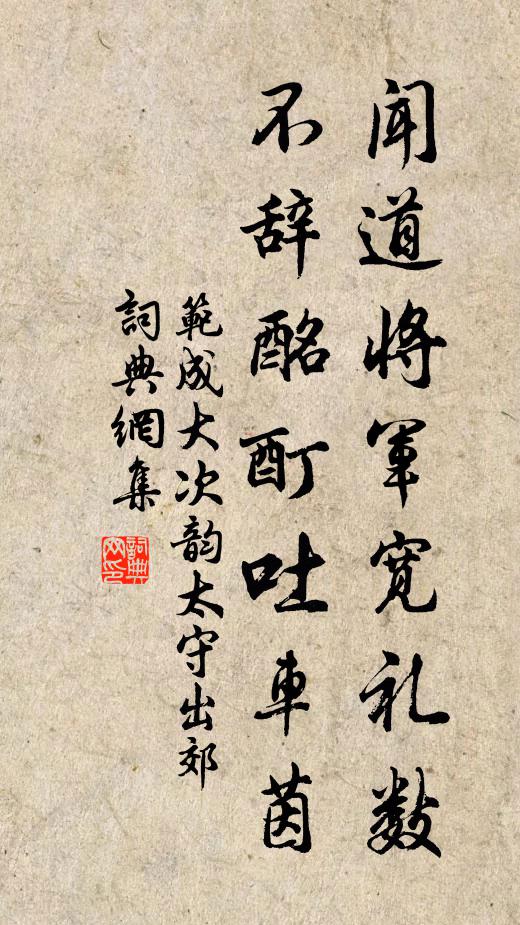 闻道将军宽礼数
不辞酩酊吐車茵
範成大次韵太守出郊
詞典網集
詞典
网印